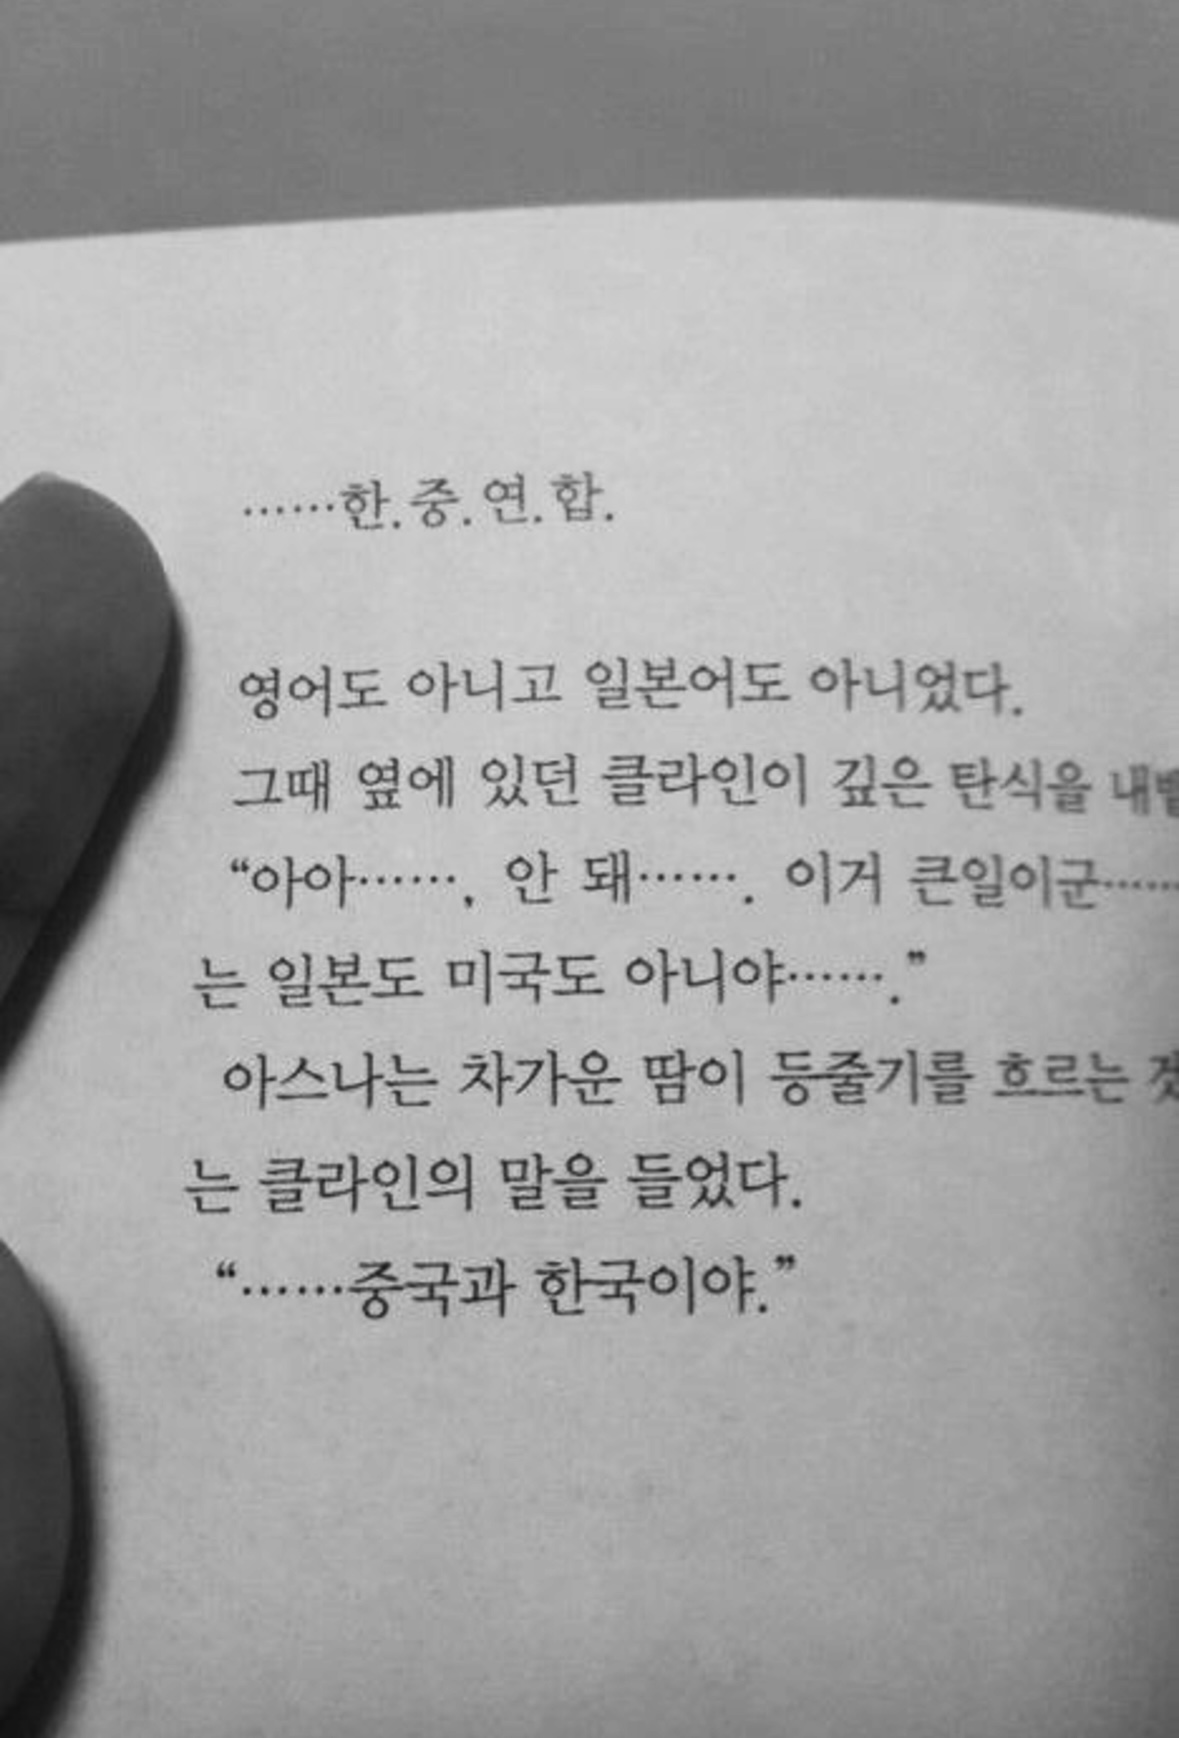 ……한.중.연.합.
영어도 아니고 일본어도 아니었다.
그때 옆에 있던 클라인이 깊은 탄식을
“아아……, 안 돼……. 이거 큰일이군……
는 일본도 미국도 아니야…….”
아스나는 차가운 땀이 등줄기를 흐르는
는 클라인의 말을 들었다.
“……중국과 한국이야.”